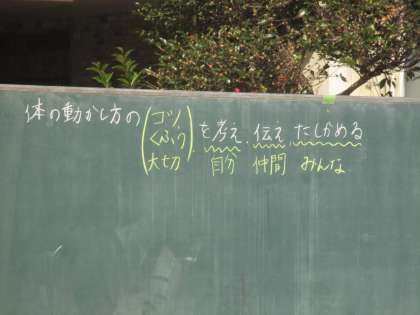 体の動かし方の(コツ、くふう、大切)を考え、伝え、たしかめる
自分 仲間 みんな